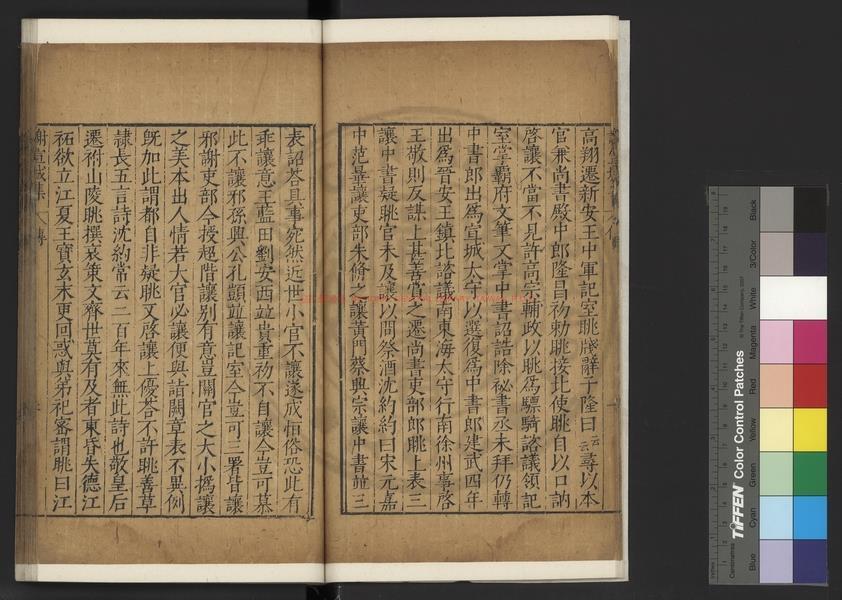 高翔遷新安王中軍記室眺牋辭子隆曰云云尋以本
官兼尚書殿中郎隆昌初勑眺接北使眺自以口訥
啓讓不當不見許高宗輔政以眺爲驃騎諮議領記
室掌霸府文筆又掌中書詔誥除祕書丞未拜仍轉
中書郎出爲宣城太守以選復爲中書郎建武四年
出爲晉安王鎮北諮議南東海太守行南徐州事啓
王敬則反謀上甚善賞之遷尚書吏部郎眺上表三
讓中書疑眺官未及讓以問祭酒沈約約曰宋元嘉
中范曄讓吏部朱脩之讓黃門蔡興宗讓中書並三
表詔荅具事宛然近世小官不讓遂成恒俗恐此有
乖讓意王藍田劉安西竝貴重初不自讓今豈可慕
此不讓邪孫興公孔顗竝讓記室今豈可三署皆讓
邪謝吏部今授超階讓別有意豈關官之大小撝讓
之美本出人情若大官必讓便與詣闕章表不異例
旣如此謂都自非疑眺又啓讓上優荅不許眺善草
隷長五言詩沈約常云二百年來無此詩也敬皇后
遷祔山陵眺撰哀策文齊世莫有及者東昏失德江
祏欲立江夏王寶玄末更回惑與弟祀密謂眺曰江
謝宣城集 傳